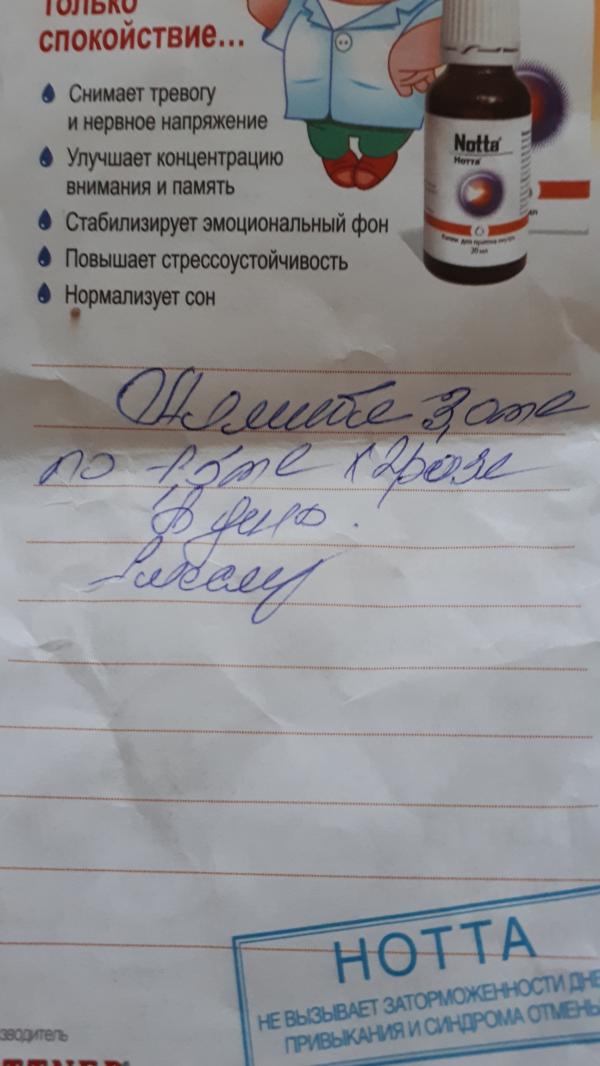 только
спокойствие...
Снимает тревогу
и нервное напряжение
Улучшает концентрацию
внимания и память
Стабилизирует эмоциональный фон
Повышает стрессоустойчивость
Нормализует сон
Notta
Нотта
Капли для приема внутрь
20 мл
по 1 х 2 раза
в день.
1 месяц
НОТТА
НЕ ВЫЗЫВАЕТ ЗАТОРМОЖЕННОСТИ ДНЕ
ПРИВЫКАНИЯ И СИНДРОМА ОТМЕНЫ
зводитель